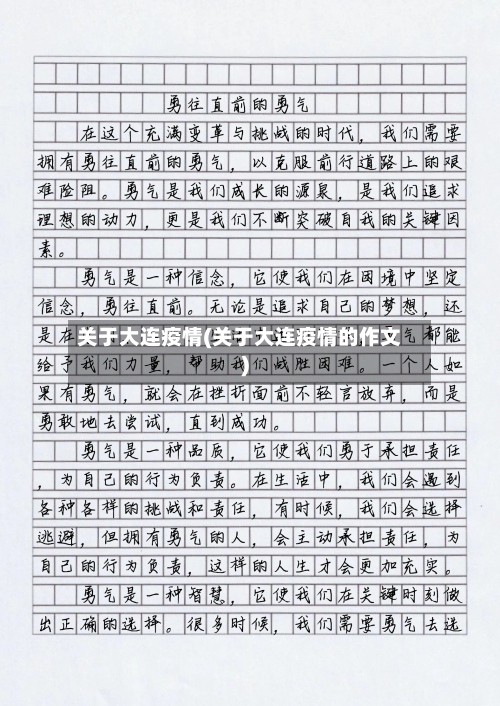 勇往直前的勇气
在这个充满变革与挑战的时代，我们需要
拥有勇往直前的勇气，以克服前行道路上的艰
难险阻。勇气是我们成长的源泉，是我们追求
理想的动力，更是我们不断突破自我的关键因
素。
勇气是一种信念，它使我们在困境中坚定
信念，勇往直前。无论是追求自己的梦想，还
是在
气都能
关于大连疫情(关于大连疫情的作文
)
给予我们力量，帮助我们战胜困难。一个人如
果有勇气，就会在挫折面前不轻言放弃，而是
勇敢地去尝试，直到成功。
勇气是一种品质，它使我们勇于承担责任
，为自己的行为负责。在生活中，我们会遇到
各种各样的挑战和责任，有时候，我们会选择
逃避，但拥有勇气的人，会主动承担责任，为
自己的行为负责，这样的人生才会更加充实。
勇气是一种智慧，它使我们在关键时刻做
出正确的选择。很多时候，我们需要勇气去选